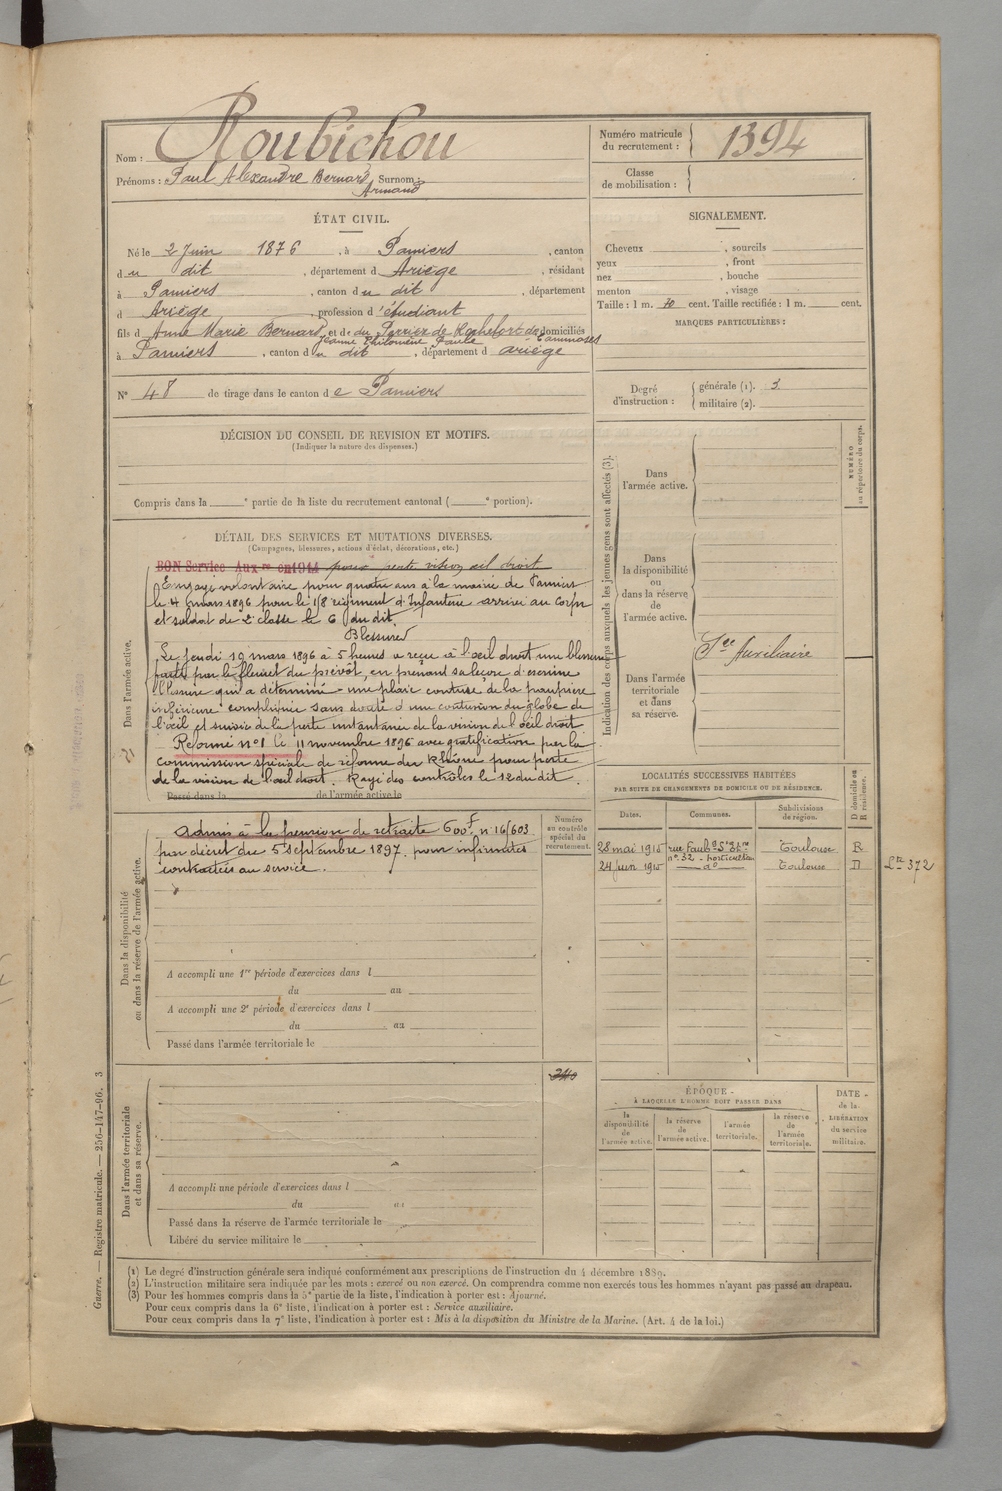 Nom : Roubichou
Prénoms : Paul Alexandre Bernard Surnom :
Armand
Numéro matricule du recrutement : 1394
Classe de mobilisation :
ÉTAT CIVIL.
Né le 2 Juin 1876, à Pamiers, canton
du dit, département d Ariège, résidant
à Pamiers, canton du dit, département
d Ariège, profession d'étudiant
fils d Anne Marie Bernard, et de du Perrier de Rochefort de domiciliés
Jeanne Philomène Paule Cammazes
à Pamiers, canton du dit, département d ariège
N° 48 de tirage dans le canton de Pamiers
SIGNALEMENT.
Cheveux , sourcils
yeux , front
nez , bouche
menton , visage
Taille : 1 m. 70 cent. Taille rectifiée : 1 m. cent.
MARQUES PARTICULIÈRES :
Degré d'instruction : générale (1). 3.
militaire (2).
DÉCISION DU CONSEIL DE REVISION ET MOTIFS.
(Indiquer la nature des dispenses.)
Compris dans la e partie de la liste du recrutement cantonal ( e portion).
DÉTAIL DES SERVICES ET MUTATIONS DIVERSES.
(Campagnes, blessures, actions d'éclat, décorations, etc.)
Dans l'armée active.
BON Service Aux re en 1914 pour perte vision œil droit
Engagé volontaire pour quatre ans à la mairie de Pamiers
le 4 mars 1896 pour le 18 régiment d'Infanterie arrivé au Corps
et soldat de 2e classe le 6 du dit.
Blessures
Le jeudi 19 mars 1896 à 5 heures a reçu à l'œil droit une blessure
faite par le fleuret du prévôt, en prenant sa leçon d'escrime
blessure qui a déterminé une plaie contuse de la paupière
inférieure compliquée sans doute d'une contusion du globe de
l'œil et suivie de la perte instantanée de la vision de l'œil droit
Réformé n°1 le 11 novembre 1896 avec gratification par la
commission spéciale de réforme du Rhône pour perte
de la vision de l'œil droit. Rayé des contrôles le 12 du dit.
Passé dans la de l'armée active le
Indication des corps auxquels les jeunes gens sont affectés (3).
NUMÉRO au répertoire du corps.
Dans l'armée active.
Dans la disponibilité ou dans la réserve de l'armée active.
Dans l'armée territoriale et dans sa réserve.
Sce Auxiliaire
Dans la disponibilité ou dans la réserve de l'armée active.
Admis à la pension de retraite 600f. n° 16603.
par décret du 5 septembre 1897. pour infirmités
contractées au service.
Numéro au contrôle spécial du recrutement.
A accompli une 1re période d'exercices dans l
du au
A accompli une 2e période d'exercices dans l
du au
Passé dans l'armée territoriale le
LOCALITÉS SUCCESSIVES HABITÉES
PAR SUITE DE CHANGEMENTS DE DOMICILE OU DE RÉSIDENCE.
Dates. Communes. Subdivisions de région. D domicile ou R résidence.
28 mai 1910 rue Faubg St Et ne Toulouse R
n° 32 - horticulteur
24 juin 1910 do Toulouse D Lte 372
Dans l'armée territoriale et dans sa réserve.
A accompli une période d'exercices dans l
du au
Passé dans la réserve de l'armée territoriale le
Libéré du service militaire le
ÉPOQUE
À LAQUELLE L'HOMME DOIT PASSER DANS
la disponibilité de l'armée active. la réserve de l'armée active. l'armée territoriale. la réserve de l'armée territoriale.
DATE de la LIBÉRATION du service militaire.
(1) Le degré d'instruction générale sera indiqué conformément aux prescriptions de l'instruction du 4 décembre 1889.
(2) L'instruction militaire sera indiquée par les mots : exercé ou non exercé. On comprendra comme non exercés tous les hommes n'ayant pas passé au drapeau.
(3) Pour les hommes compris dans la 5e partie de la liste, l'indication à porter est : Ajourné.
Pour ceux compris dans la 6e liste, l'indication à porter est : Service auxiliaire.
Pour ceux compris dans la 7e liste, l'indication à porter est : Mis à la disposition du Ministre de la Marine. (Art. 4 de la loi.)
Guerre. — Registre matricule. — 256-147-96. 3